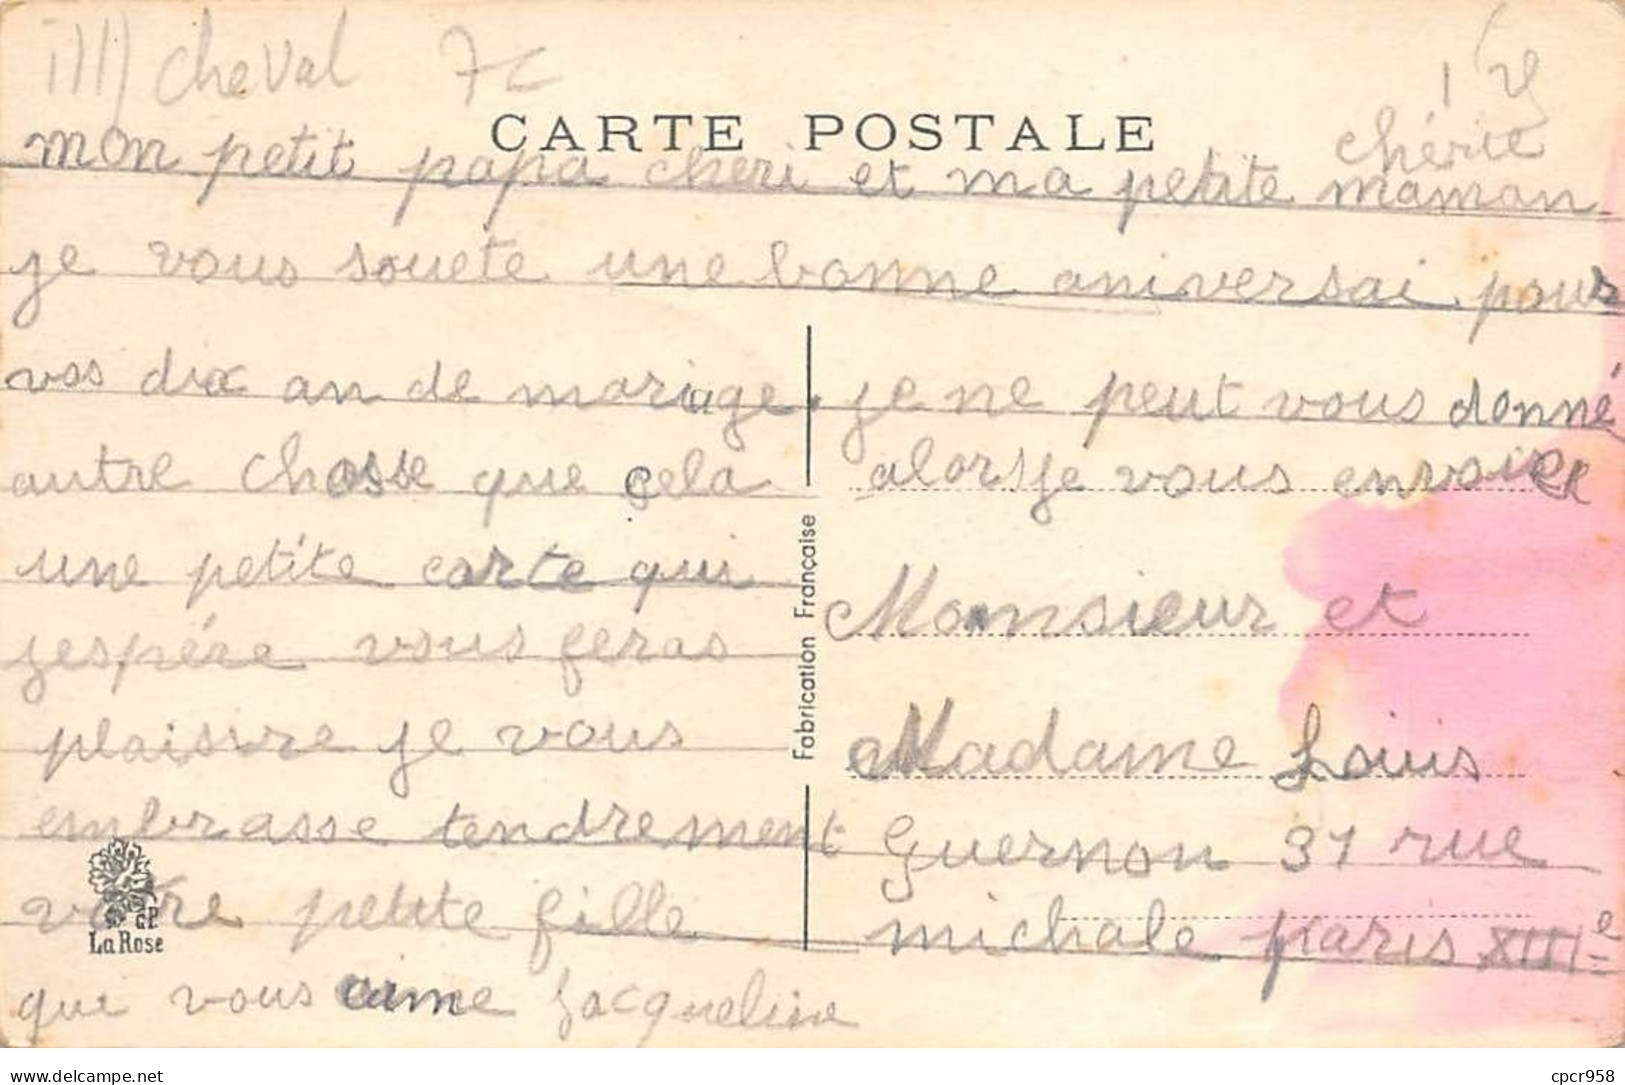 cheval 7c
CARTE POSTALE
chérie
mon petit papa cheri et ma petite maman
je vous souete une bonne aniversai pour
vos dix an de mariage. je ne peut vous donné
autre chosse que cela alors je vous envoie
une petite carte qui
jespére vous feras
plaisire je vous
embrasse tendrement
votre petite fille
qui vous aime Jacqueline
Monsieur et
Madame Louis
Guernon 37 rue
michale paris XIIIe
Fabrication Française
GP
La Rose
delcampe.net
cpcr958